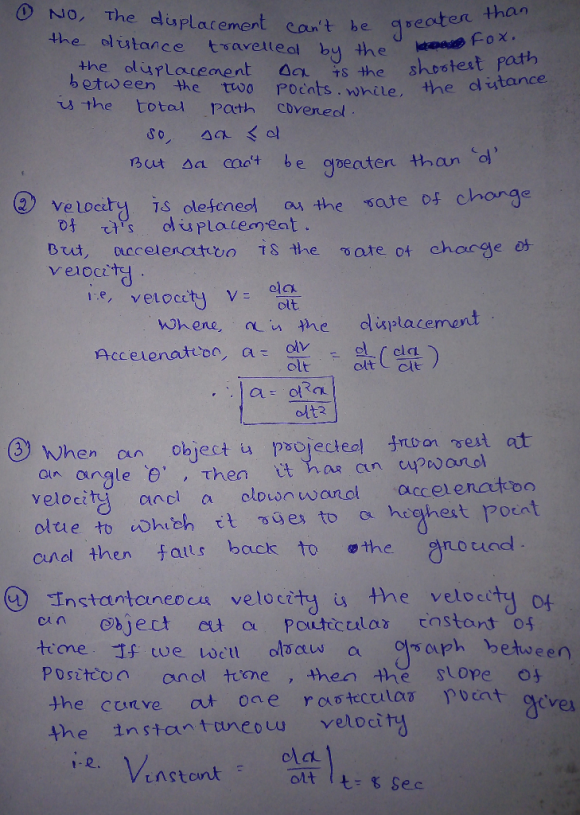 ① NO, The displacement can't be greater than
the distance travelled by the Fox.
the displacement Δx is the shortest path
between the two points. while, the distance
is the total path covered.
so, Δx ≤ d
But Δx can't be greater than 'd'
② velocity is defined as the rate of change
of it's displacement.
But, acceleration is the rate of change of
velocity.
i.e, velocity V = dx/dt
Where, x is the displacement.
Acceleration, a = dv/dt = d/dt (dx/dt)
∴ a = d²x/dt²
③ When an object is projected from rest at
an angle 'θ', Then it has an upward
velocity and a downward acceleration
due to which it rises to a highest point
and then falls back to the ground.
④ Instantaneous velocity is the velocity of
an object at a particular instant of
time. If we will draw a graph between
Position and time, then the slope of
the curve at one particular point gives
the instantaneous velocity
i.e. Vinstant = dx/dt | t = 8 sec